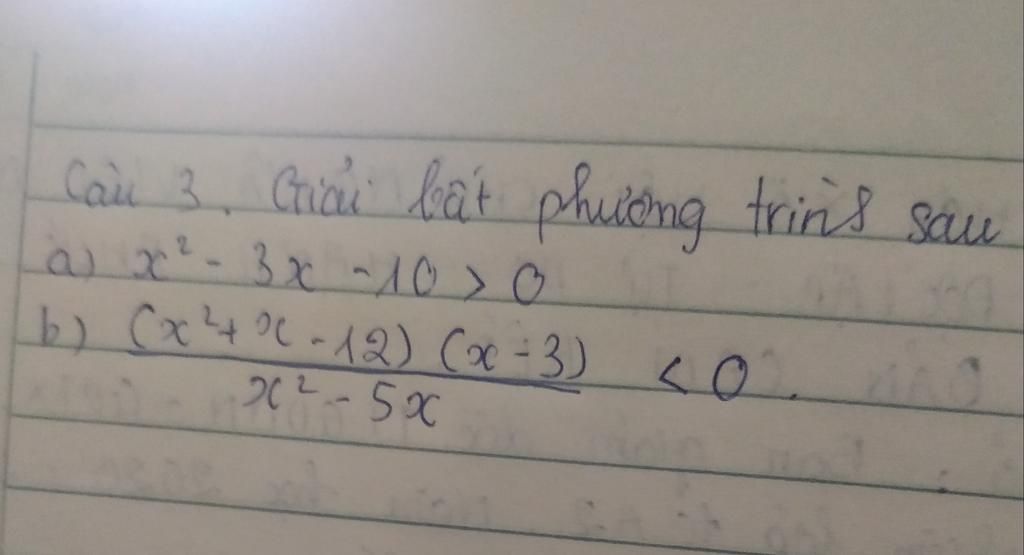 Câu 3. Giải bất phương trình sau
a) x² - 3x - 10 > 0
b) (x² + x - 12) (x - 3) < 0.
x² - 5x